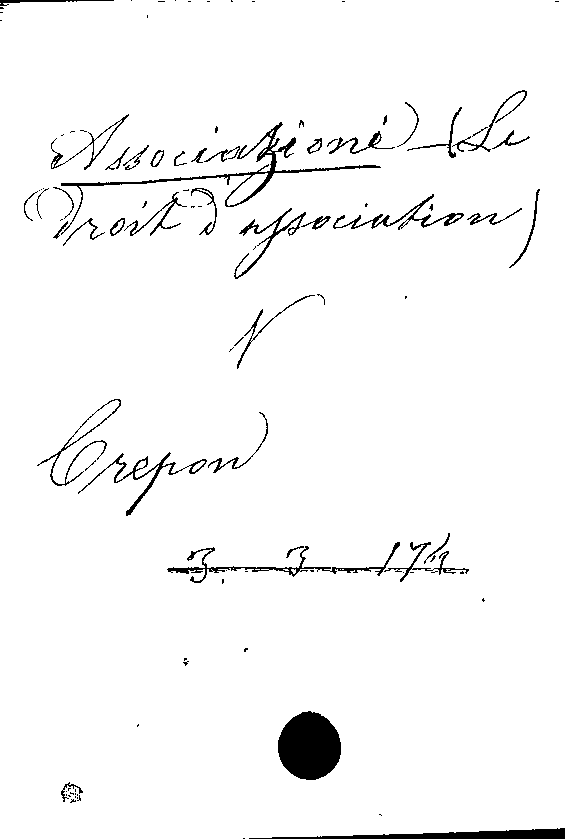 Associazioni (Le
droit d'association)
V
Crepon
3. 3. 17